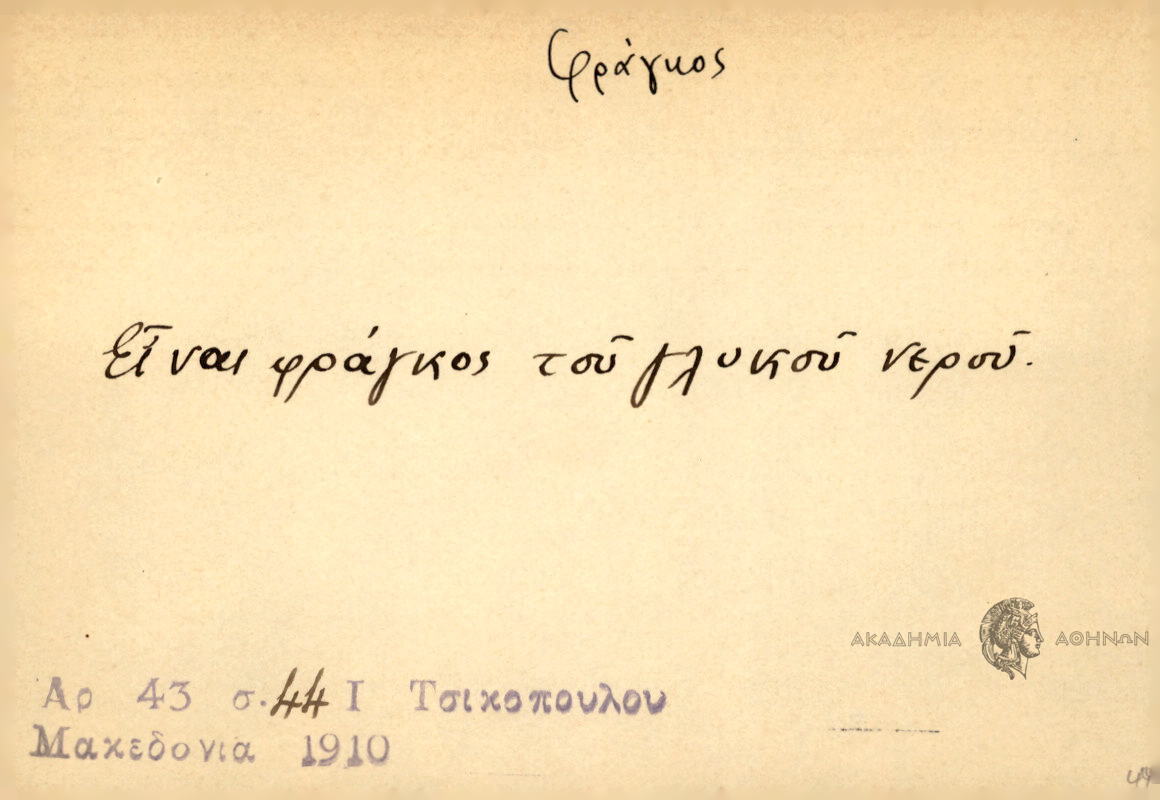 Φράγκος
Εἶναι φράγκος τοῦ γλυκοῦ νεροῦ.
ΑΚΑΔΗΜΙΑ ΑΘΗΝΩΝ
Αρ 43 σ. 44 Ι Τσικοπουλου
Μακεδονια 1910